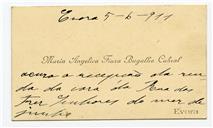 Evora 5-6-911
Maria Angelica Fiuza Bugalho Cabral
acuso a recepção da ren
da da casa da Rua dos
tres Senhores do mez de
junho
Evora